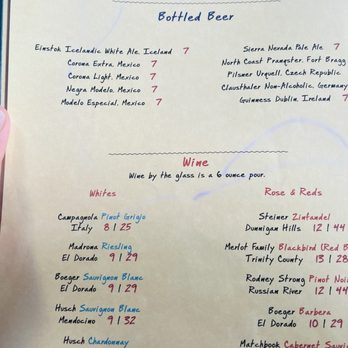 Bottled Beer
Einstok Icelandic White Ale, Iceland 7
Corona Extra, Mexico 7
Corona Light, Mexico 7
Negra Modelo, Mexico 7
Modelo Especial, Mexico 7
Sierra Nevada Pale Ale 7
North Coast Pranqster, Fort Bragg
Pilsner Urquell, Czech Republic
Clausthaler Non-Alcoholic, Germany
Guinness Dublin, Ireland 7
Wine
Wine by the glass is a 6 ounce pour.
Whites
Campagnola Pinot Grigio
Italy 8 | 25
Madrona Riesling
El Dorado 9 | 29
Boeger Sauvignon Blanc
El Dorado 9 | 29
Husch Sauvignon Blanc
Mendocino 9 | 32
Husch Chardonnay
Rose & Reds
Steiner Zinfandel
Dunnigan Hills 12 | 44
Merlot Family Blackbird (Red B
Trinity County 13 | 28
Rodney Strong Pinot Noi
Russian River 12 | 44
Boeger Barbera
El Dorado 10 | 29
Matchbook Cabernet Sauv